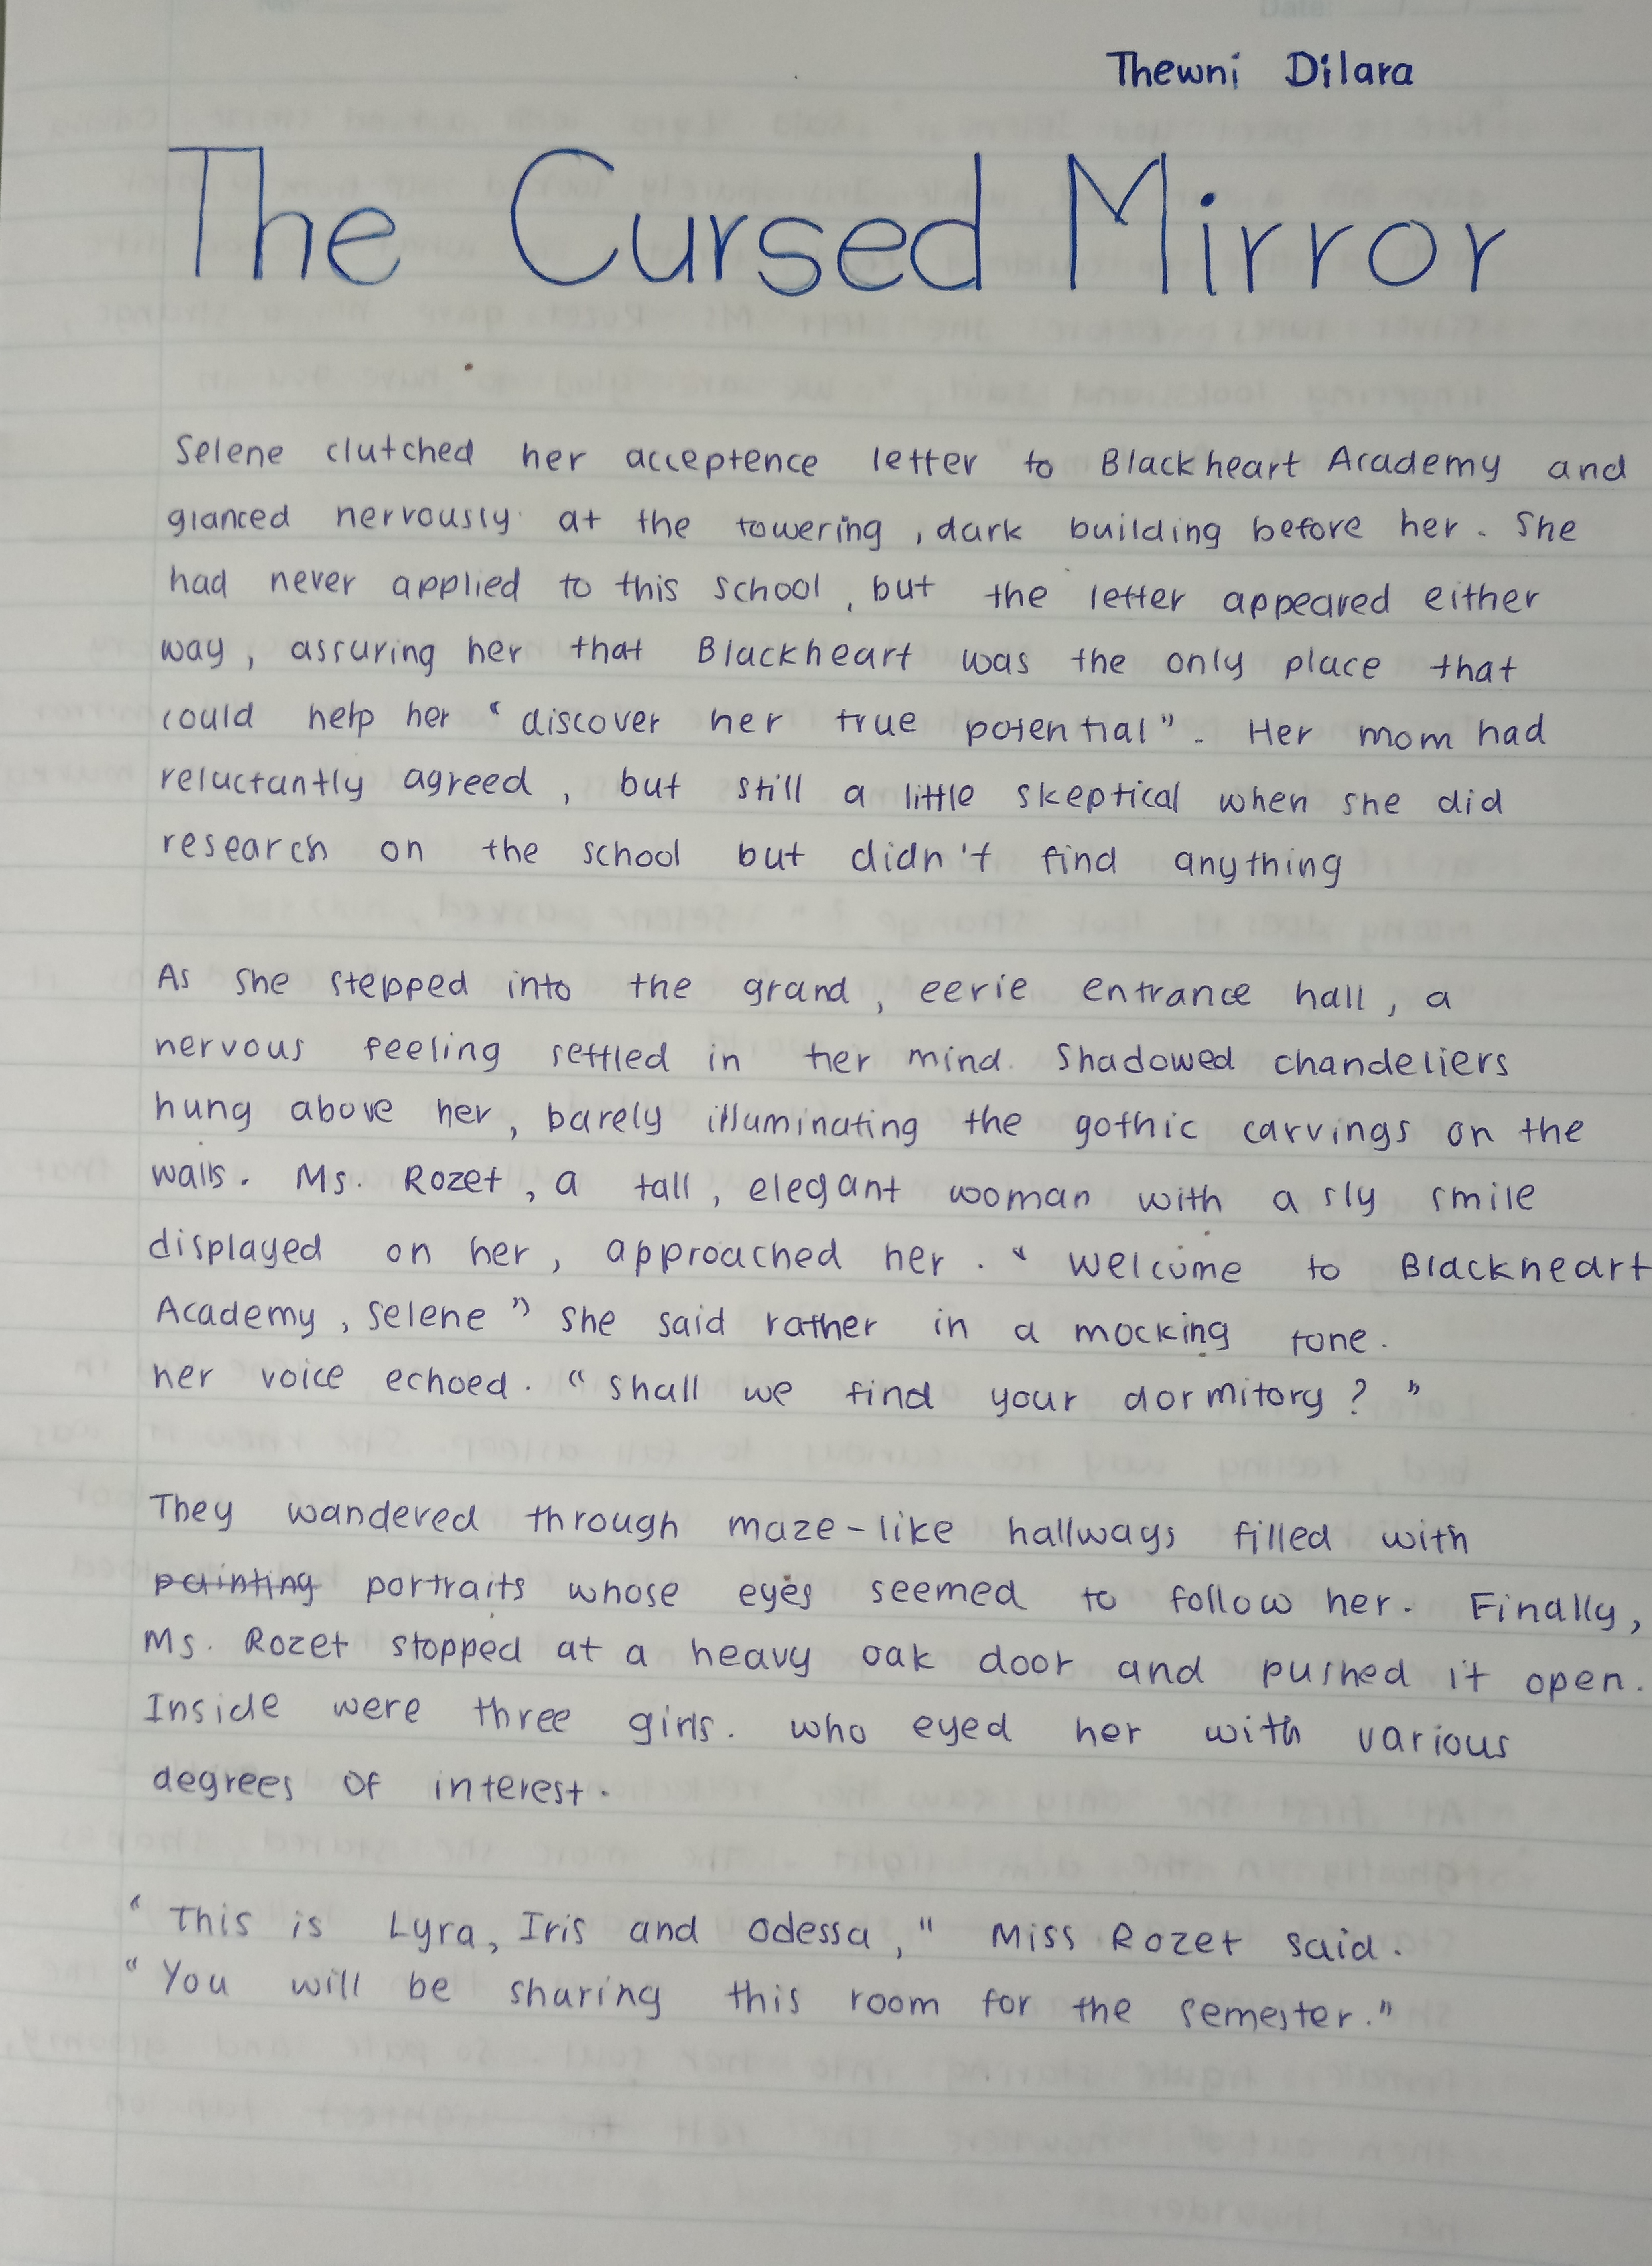 Thewni Dilara
The Cursed Mirror
Selene clutched her acceptence letter to Blackheart Academy and
glanced nervously at the towering , dark building before her. She
had never applied to this school, but the letter appeared either
way, assuring her that Blackheart was the only place that
could help her “discover her true potential”. Her mom had
reluctantly agreed, but still a little skeptical when she did
research on the school but didn't find anything
As she stepped into the grand, eerie entrance hall, a
nervous feeling settled in her mind. Shadowed chandeliers
hung above her, barely illuminating the gothic carvings on the
walls. Ms. Rozet, a tall, elegant woman with a sly smile
displayed on her, approached her. “ Welcome to Blackheart
Academy, Selene” She said rather in a mocking tone.
her voice echoed. “Shall we find your dormitory?”
They wandered through maze-like hallways filled with
painting portraits whose eyes seemed to follow her. Finally,
Ms. Rozet stopped at a heavy oak door and pushed it open.
Inside were three girls. who eyed her with various
degrees of interest.
“This is Lyra, Iris and Odessa," Miss Rozet said.
“You will be sharing this room for the semester.”